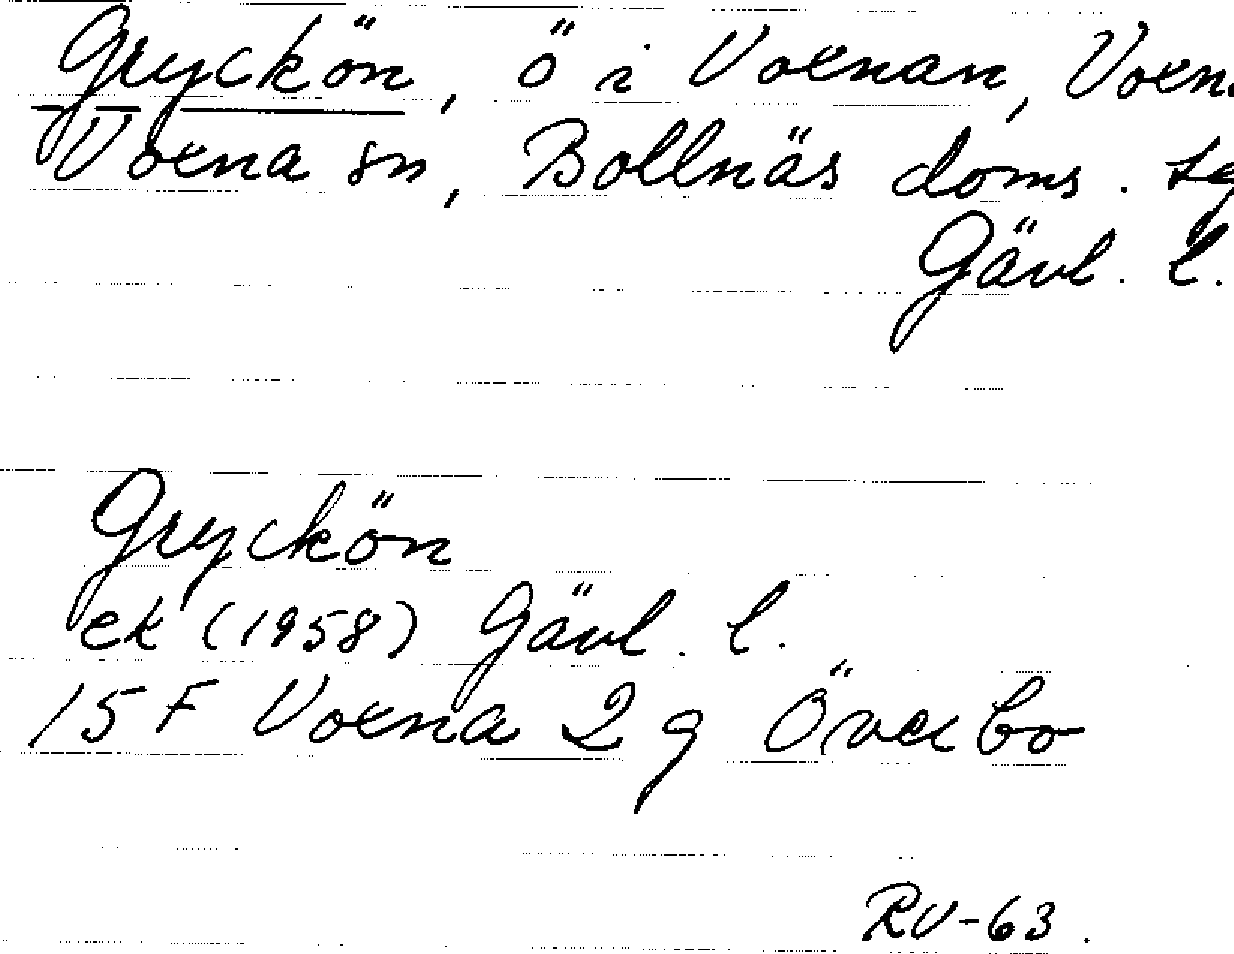 Gryckön, ö i Voxnan, Voxna
Voxna sn, Bollnäs doms. tg
Gävl. l.
Gryckön
ek (1958) Gävl. l.
15 F Voxna 2 g Överbo
RV-63.